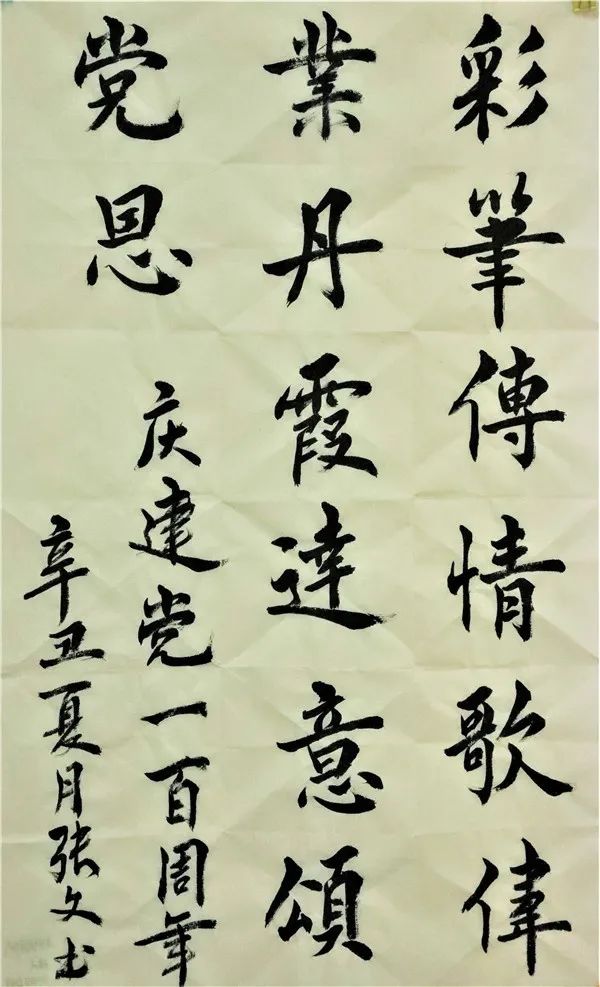 彩筆傳情歌偉
業丹霞達意頌
党恩
庆建党一百周年
辛丑夏月张文书